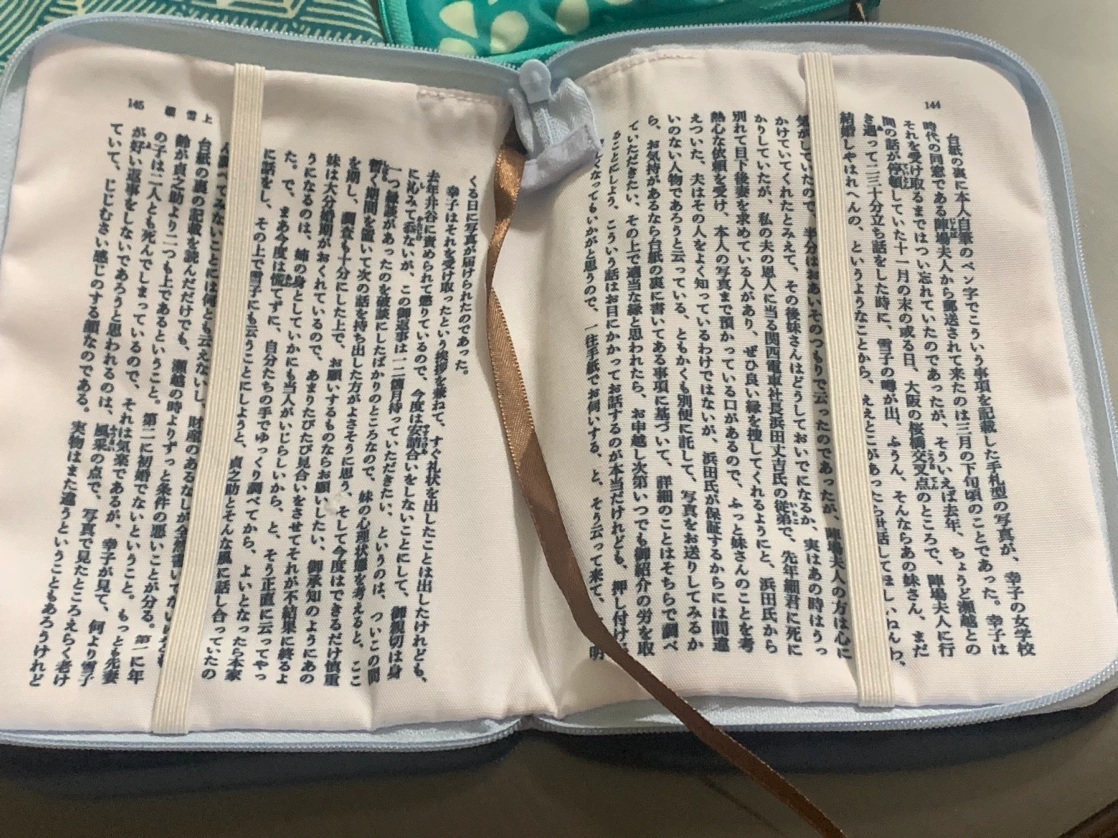 144
台紙の裏に本人自筆のペン字でこういう事項を記載した手札型の写真が、幸子の女学校
時代の同窓である陣場夫人から郵送されて来たのは三月の下旬頃のことであった。幸子は
それを受け取るまではつい忘れていたのであったが、そういえば去年、ちょうど瀬越との
間の話が停頓していた十一月の末の或る日、大阪の桜橋交叉点のところで、陣場夫人に行
き遇って二三十分立ち話をした時に、雪子の噂が出、ふうん、そんならあの妹さん、まだ
結婚しやはれへんの、というようなことから、ええとこがあったら世話してほしいねんわ、
気がしていたので、半分はおあいそのつもりで云ったのであったが、陣場夫人の方は心に
かけていてくれたとみえて、その後妹さんはどうしておいでになるか、実はあの時はうっ
かりしていたが、私の夫の恩人に当る関西電車社長浜田丈吉氏の従弟で、先年細君に死に
別れて目下後妻を求めている人があり、ぜひ良い縁を捜してくれるようにと、浜田氏から
熱心な依頼を受け、本人の写真まで預かっている口があるので、ふっと妹さんのことを考
えついた、夫はその人をよく知っているわけではないが、浜田氏が保証するからには間違
いのない人物であろうと云っている、ともかくも別便に託して、写真をお送りしてみるか
ら、お気持があるなら台紙の裏に書いてある事項に基づいて、詳細のことはそちらで調べ
ていただきたい、その上で適当な縁と思われたら、お申越し次第いつでも御紹介の労を取
ることにしよう、こういう話はお目にかかってお話するのが本当だけれども、押し付け
しくなってもいかがと思うので、一往手紙でお伺いする、と、そう云って来て、明
145 細雪 上
くる日に写真が届けられたのであった。
幸子はそれを受け取ったという挨拶を兼ねて、すぐ礼状を出したことは出したけれども、
去年井谷に責められて懲りているので、今度は安請合いをしないことにして、御親切は身
に沁みて忝ないが、この御返事は一二箇月待っていただきたい、というのは、ついこの間
一つ縁談があったのを破談にしたばかりのところなので、妹の心理状態を考えると、ここ
暫く期間を置いて次の話を持ち出した方がよさそうに思う、そして今度はできるだけ慎重
を期し、調査も十分にした上で、お願いするものならお願いしたい、御承知のようにあの
妹は大分婚期がおくれているので、あまりたびたび見合いをさせてそれが不結果に終るよ
うになるのは、姉の身としていかにも当人がいじらしいから、と、そう正直に云ってやっ
た。で、まあ今度は慌てずに、自分たちの手でゆっくり調べてから、よいとなったら本家
に話をし、その上で雪子にも云うことにしようと、貞之助とそんな風に話し合っていたの
ん調べてみないことには何とも云えないし、財産のあるなしが全然書いてないけれども、
台紙の裏の記載を読んだだけでも、瀬越の時よりずっと条件の悪いことが分る。第一に年
齢が貞之助より二つも上であるということ。第二に初婚でないということ。もっとも先妻
の子は二人とも死んでしまっているので、それは気楽であるが、幸子が見て、何より雪子
が好い返事をしないであろうと思われるのは、風采の点で、写真で見たところえらく老け
ていて、じじむさい感じのする顔なのである。実物はまた違うということもあろうけれど